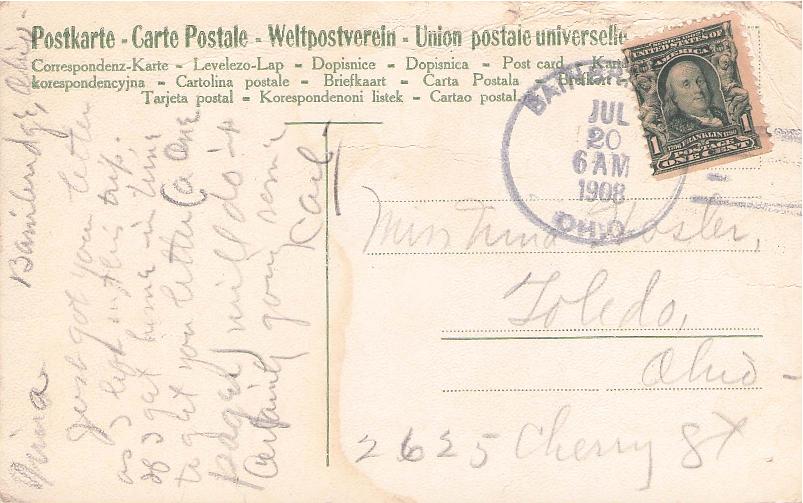 Postkarte - Carte Postale - Weltpostverein - Union postale universelle
Correspondenz-Karte - Levelezo-Lap - Dopisnice - Dopisnica - Post card - Karta
korespondencyjna - Cartolina postale - Briefkaart - Carta Postala - Brefkort
Tarjeta postal - Korespondenoni listek - Cartao postal.
UNITED STATES OF
AMERICA
1 1
FRANKLIN
POSTAGE
ONE CENT
JUL
20
6 AM
1908
OHIO.
Miss
Toledo,
Ohio
2625 Cherry St.
Bainbridge, Ohio.
Just got your letter
as I left on this trip.
I get home in time
to get your letter
will do it
Certainly going some
Carl